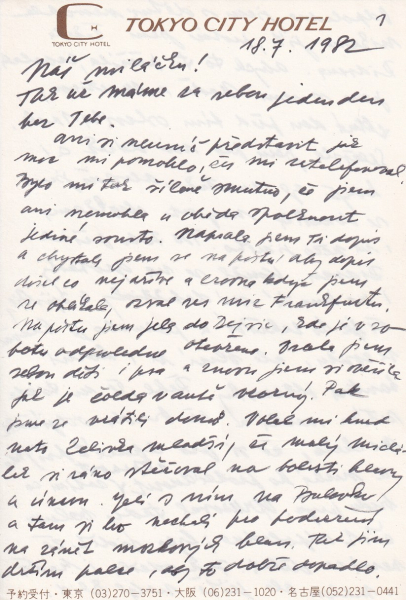 TOKYO CITY HOTEL
TOKYO CITY HOTEL
1
18.7. 1982
Náš miláčku!
Tak už máme za sebou jeden den
bez Tebe.
ani si neumíš představit jak
moc mi pomohlo, žes mi zatelefonoval.
Bylo mi tak šíleně smutno, že jsem
ani nemohla u oběda spolknout
jediné sousto. Napsala jsem Ti dopis
a chystala jsem se na poštu aby dopis
došel co nejdříve a zrovna když jsem
se oblékala, ozval ses mi z Frankfurtu.
Na poštu jsem jela do Dejvic, kde je v so
botu odpoledne otevřeno. Vzala jsem
sebou děti i psa a znovu jsem si ověřila
jak je čolda v autě vzorný. Pak
jsme se vrátili domů. Volal mi hned
nato Zelinka mladší, že malý Michá-
lek si ráno stěžoval na bolesti hlavy
a únavu. Jeli s ním na Bulovku
a tam si ho nechali pro podezření
na zánět mozkových blan. Tak jim
držím palce, aby to dobře dopadlo.
予約受付・東京 (03)270-3751・大阪 (06)231-1020・名古屋(052)231-0441